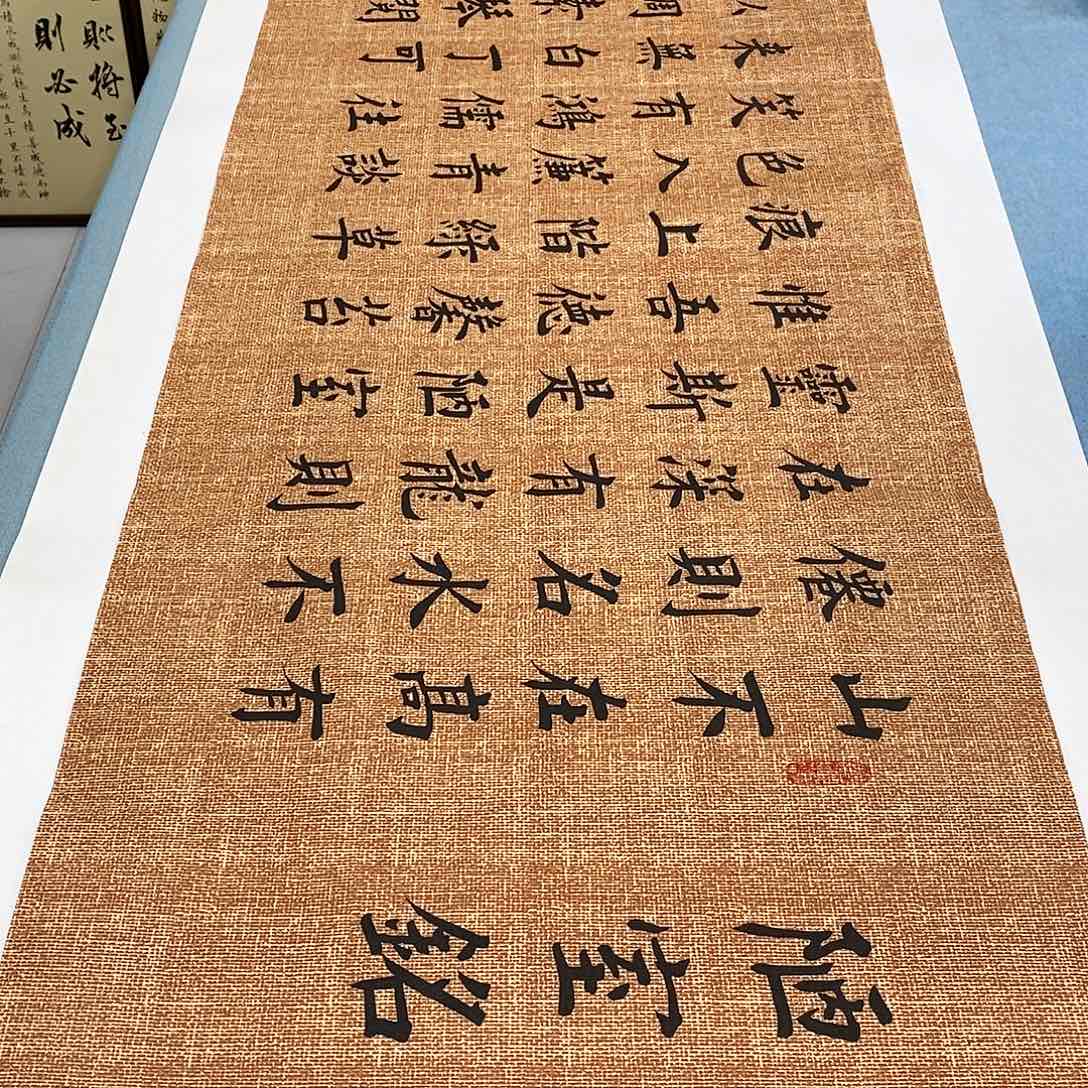 陋室銘
山不在高有
僊則名水不
在深有龍則
靈斯是陋室
惟吾德馨苔
痕上階綠草
色入簾青談
笑有鴻儒往
來無白丁可
以調素琴閱
則必成